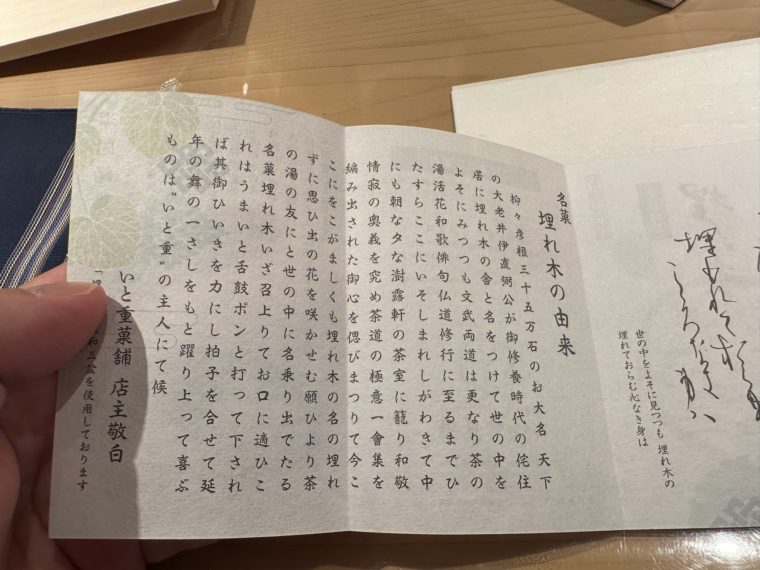 世の中をよそに見つつも 埋れ木の
埋れておらむ心なき身は
名菓
埋れ木の由来
抑々彦根三十五万石のお大名 天下
の大老井伊直弼公が御修養時代の侘住
居に埋れ木の舎と名をつけて世の中を
よそにみつつも文武両道は更なり茶の
湯活花和歌俳句仏道修行に至るまでひ
たすらここにいそしまれしがわきて中
にも朝な夕な澍露軒の茶室に籠り和敬
情寂の奥義を究め茶道の極意一會集を
編み出された御心を偲びまつりて今こ
こにをこがましくも埋れ木の名の埋れ
ずに思ひ出の花を咲かせむ願ひより茶
の湯の友にと世の中に名乗り出でたる
名菓埋れ木いざ召上りてお口に適ひこ
れはうまいと舌鼓ポンと打って下され
ば其御ひいきを力にし拍子を合せて延
年の舞の一さしをもと躍り上って喜ぶ
ものは"いと重"の主人にて候
いと重菓舗 店主敬白
和三盆を使用しております